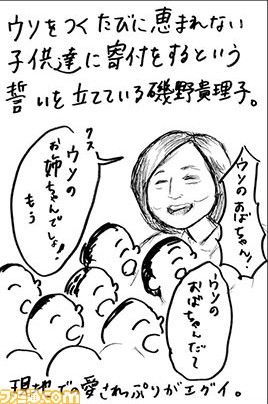 ウソをつくたびに恵まれない
子供達に寄付をするという
誓いを立てている磯野貴理子。
ウソのおばちゃん!
クス
ウソの
お姉ちゃんでしょ!
もう
ウソの
おばちゃんだ〜
現地での愛されっぷりがエグイ。
ファミ通.com